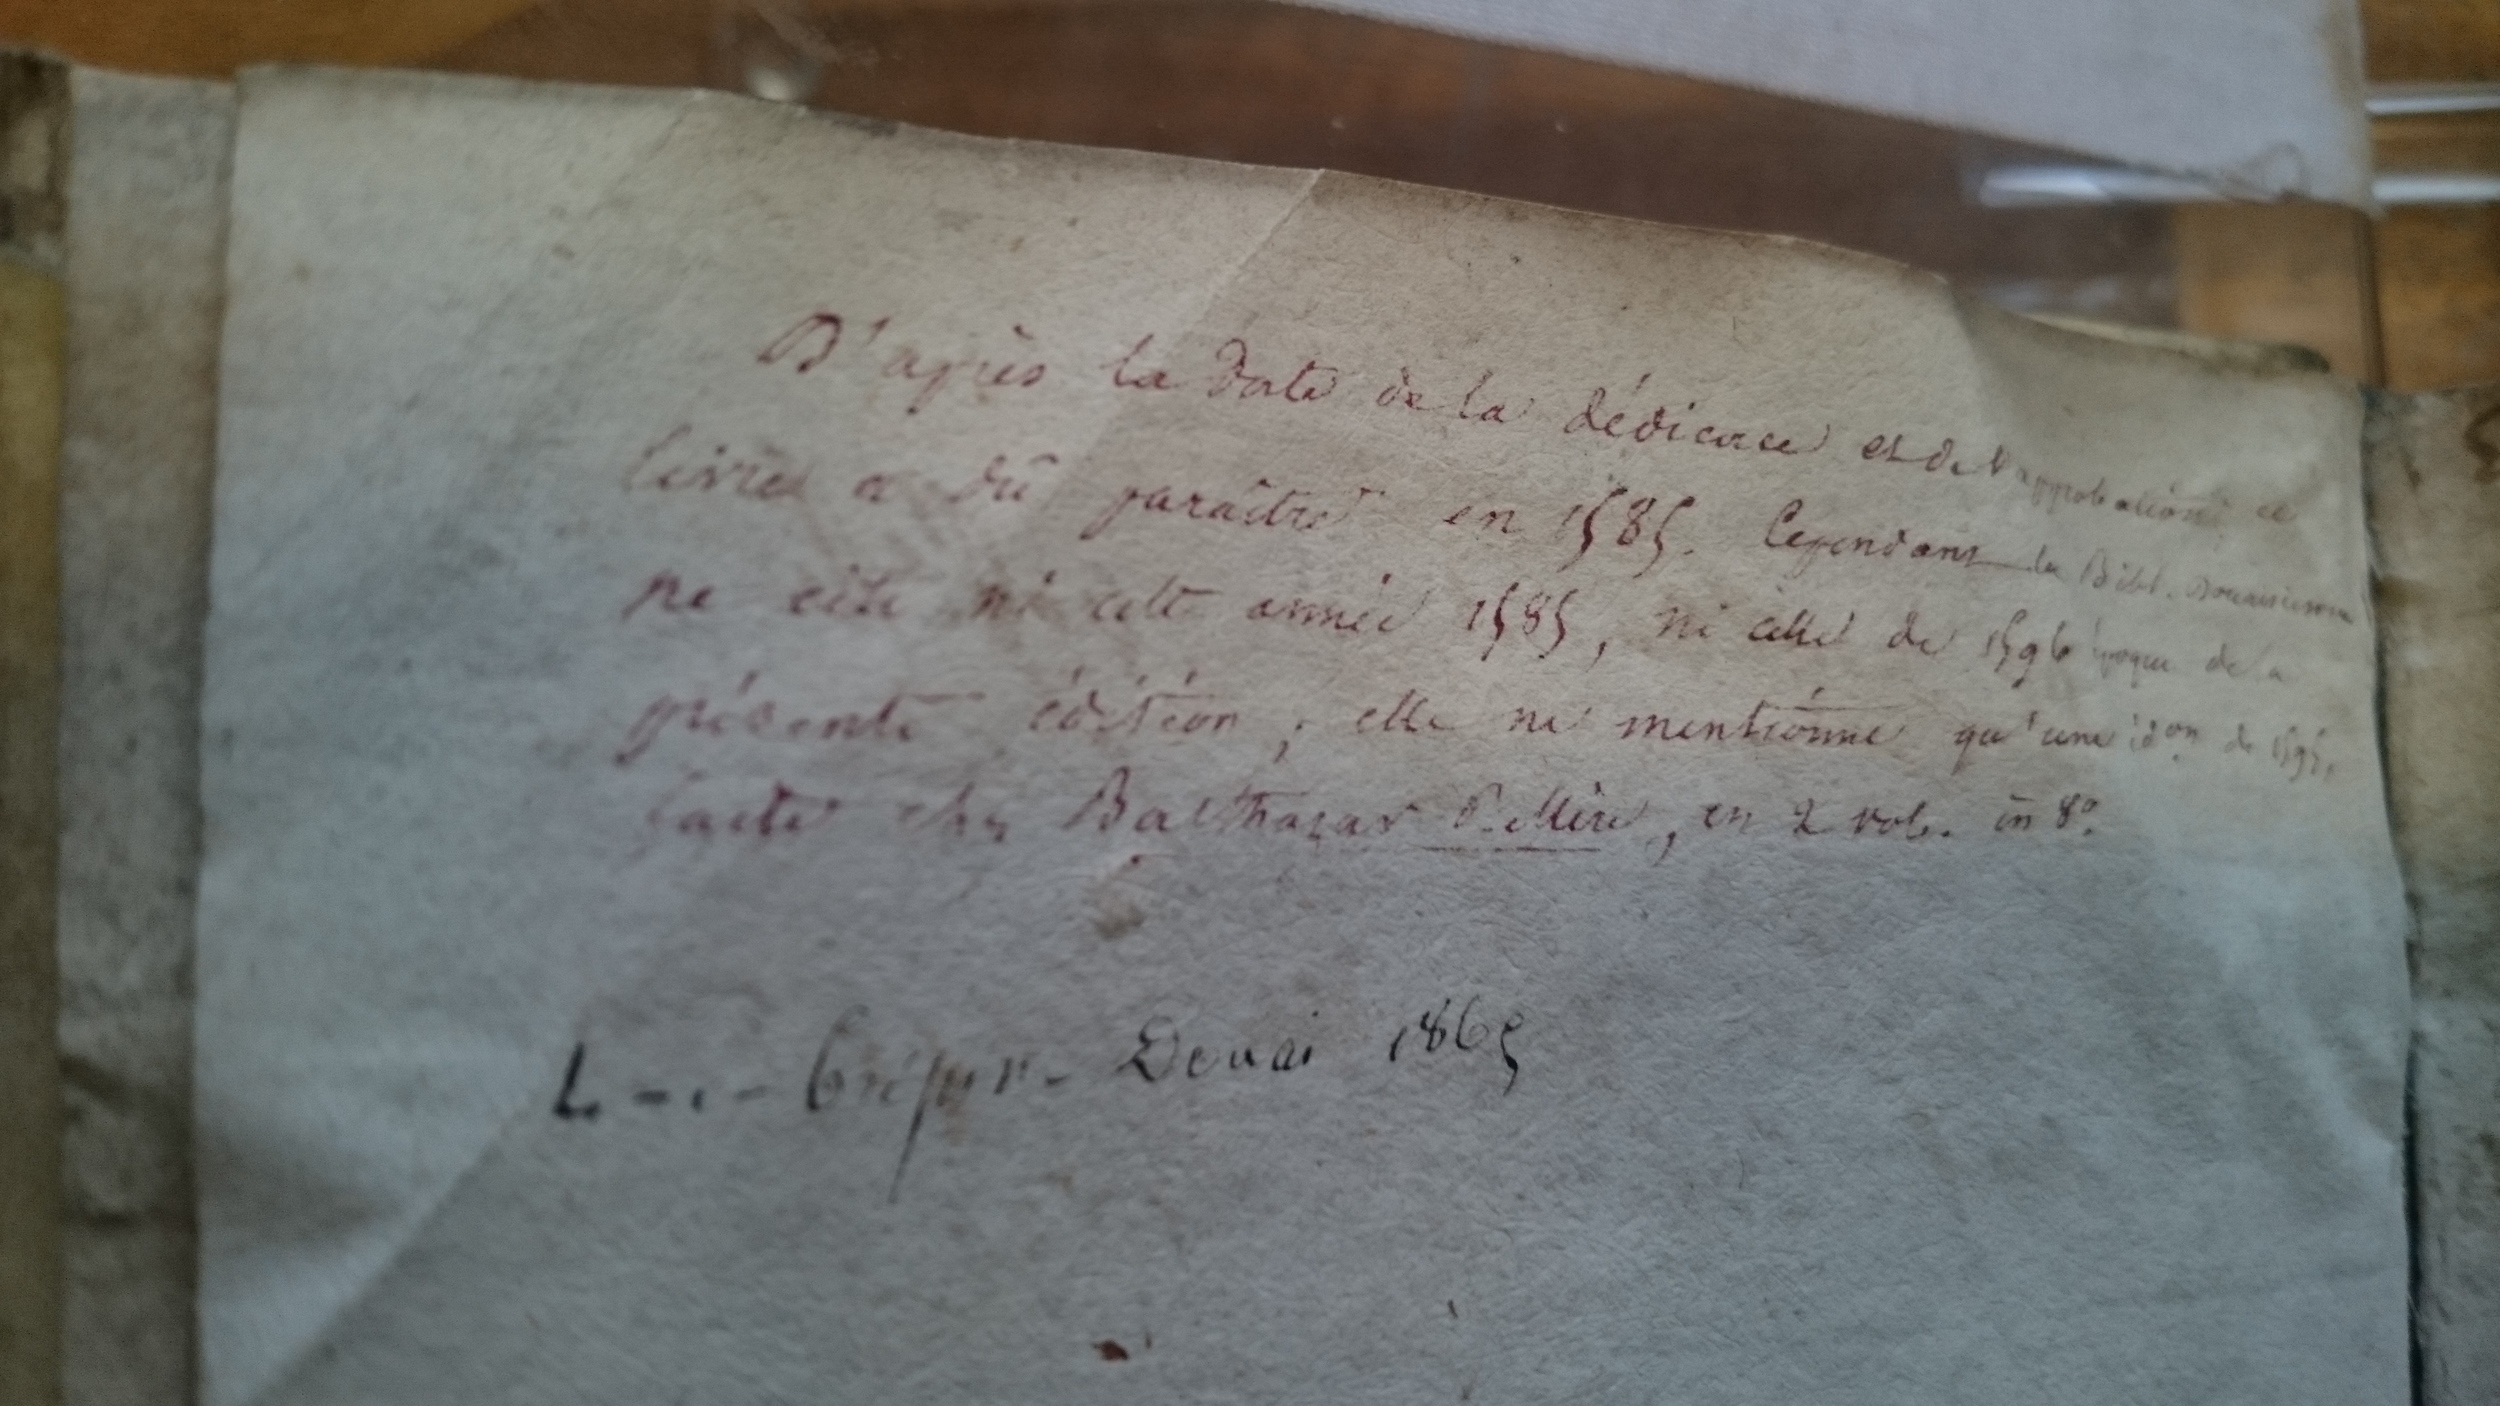 D'après la date de la dédicace et de l'approbation, ce
livre a dû paraître en 1585. Cependant la Bibl. Douaisienne
ne cite ni cette année 1585, ni celle de 1596 époque de la
présente édition ; elle ne mentionne qu'une édon de
faite chez Balthazar Bellère, en 2 vol. in 8o.
L Crépin Douai 1865